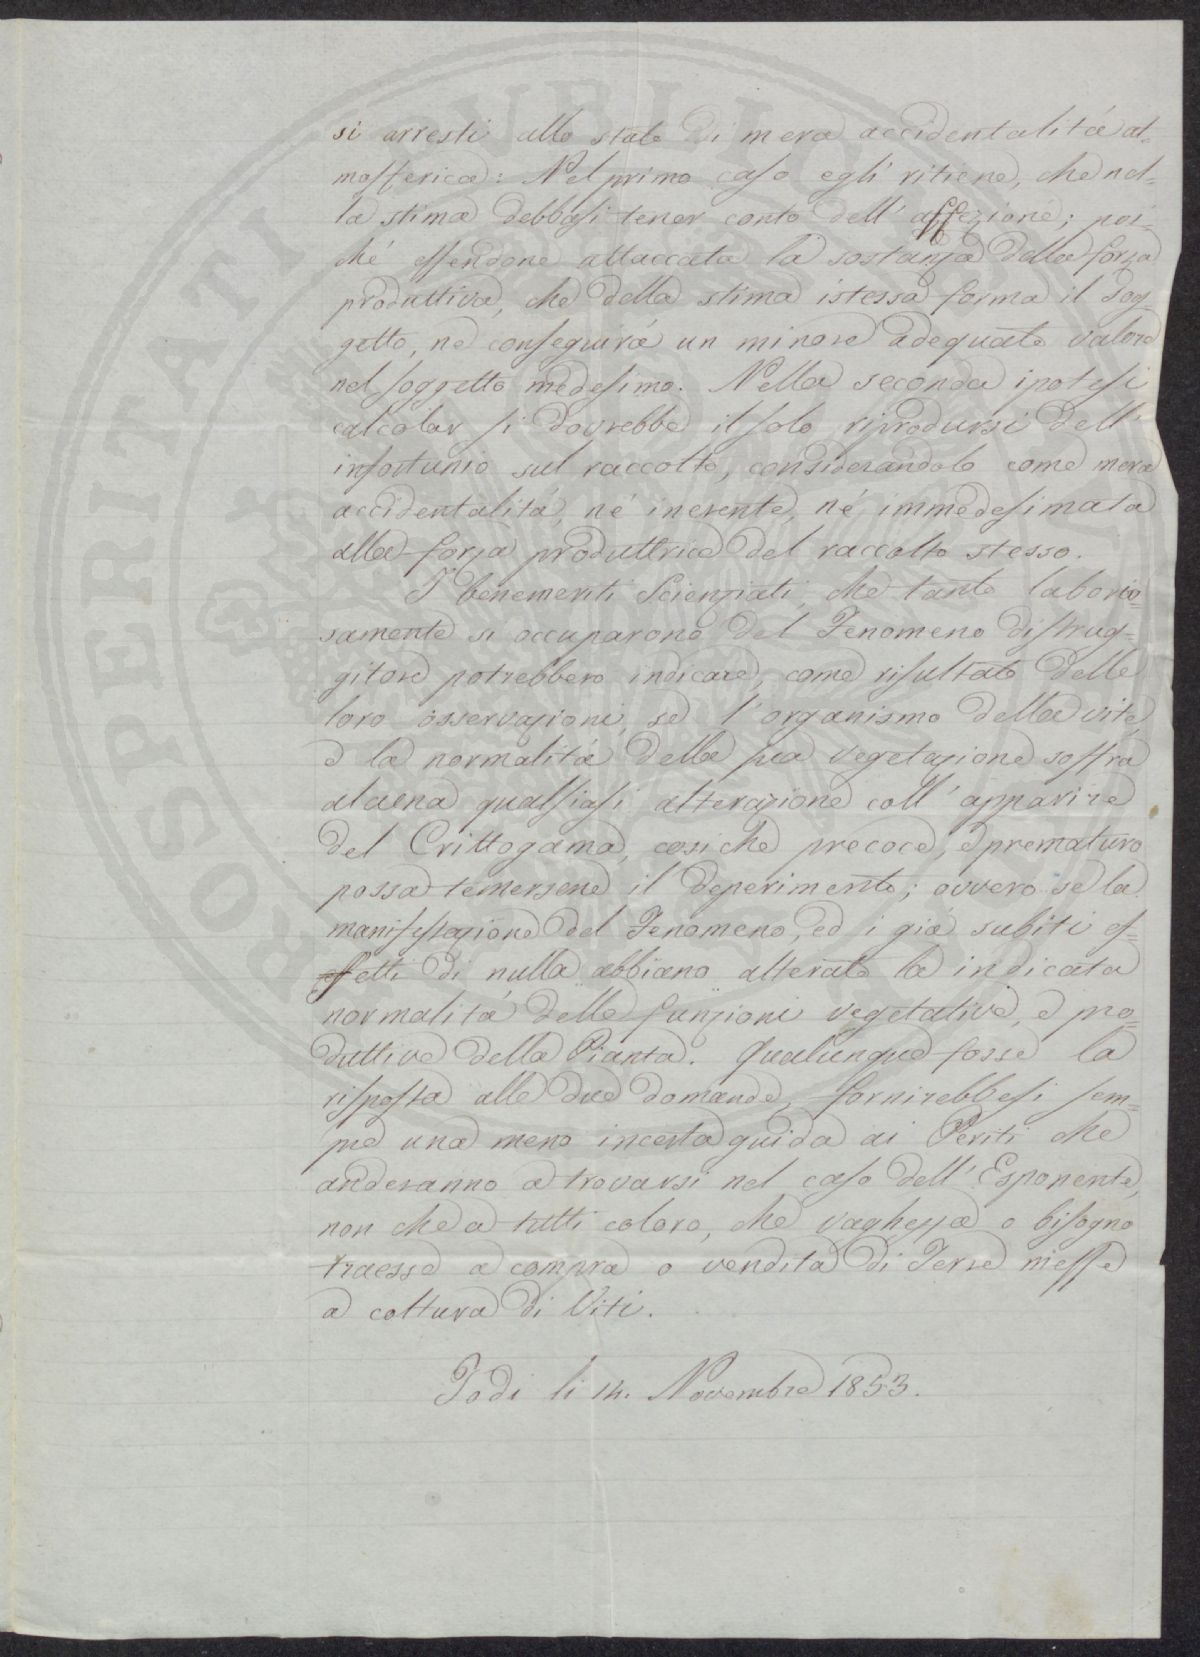 si arresti allo stato di mera accidentalitá at-
mosferica: Nel primo caso egli ritiene, che nel-
la stima debbasi tener conto dell' affezione; poi-
ché essendone attaccata la sostanza della forza
produttiva, che della stima istessa forma il sog-
getto, ne conseguirá un minore adequato valore
nel soggetto medesimo. Nella seconda ipotesi
calcolar si dovrebbe il solo riprodursi dell'
infortunio sul raccolto, considerandolo come mera
accidentalitá, né inerente, né immedesimata
alla forza produttrice del raccolto stesso.
I benemeriti Scienziati, che tanto laborio-
samente si occuparono del Fenomeno distrug-
gitore potrebbero indicare, come risultato delle
loro osservazioni, se l'organismo della vite,
e la normalitá della sua vegetazione soffra
alcuna qualsiasi alterazione coll' apparire
del Crittogama, cosiche precoce, e prematuro
possa temersene il deperimento; ovvero se la
manifestazione del Fenomeno, ed i giá subiti ef-
fetti di nulla abbiano alterato la indicata
normalitá delle funzioni vegetative, e pro-
duttive della Pianta. Qualunque fosse la
risposta alle due domande, fornirebbesi sem-
pre una meno incerta guida ai Periti che
anderanno a trovarsi nel caso dell' Esponente,
non che a tutti coloro, che vaghezza o bisogno
traesse a compra o vendita di Terre messe
a coltura di Viti.
Todi li 14. Novembre 1853.
PROSPERITATI PUBLICAE